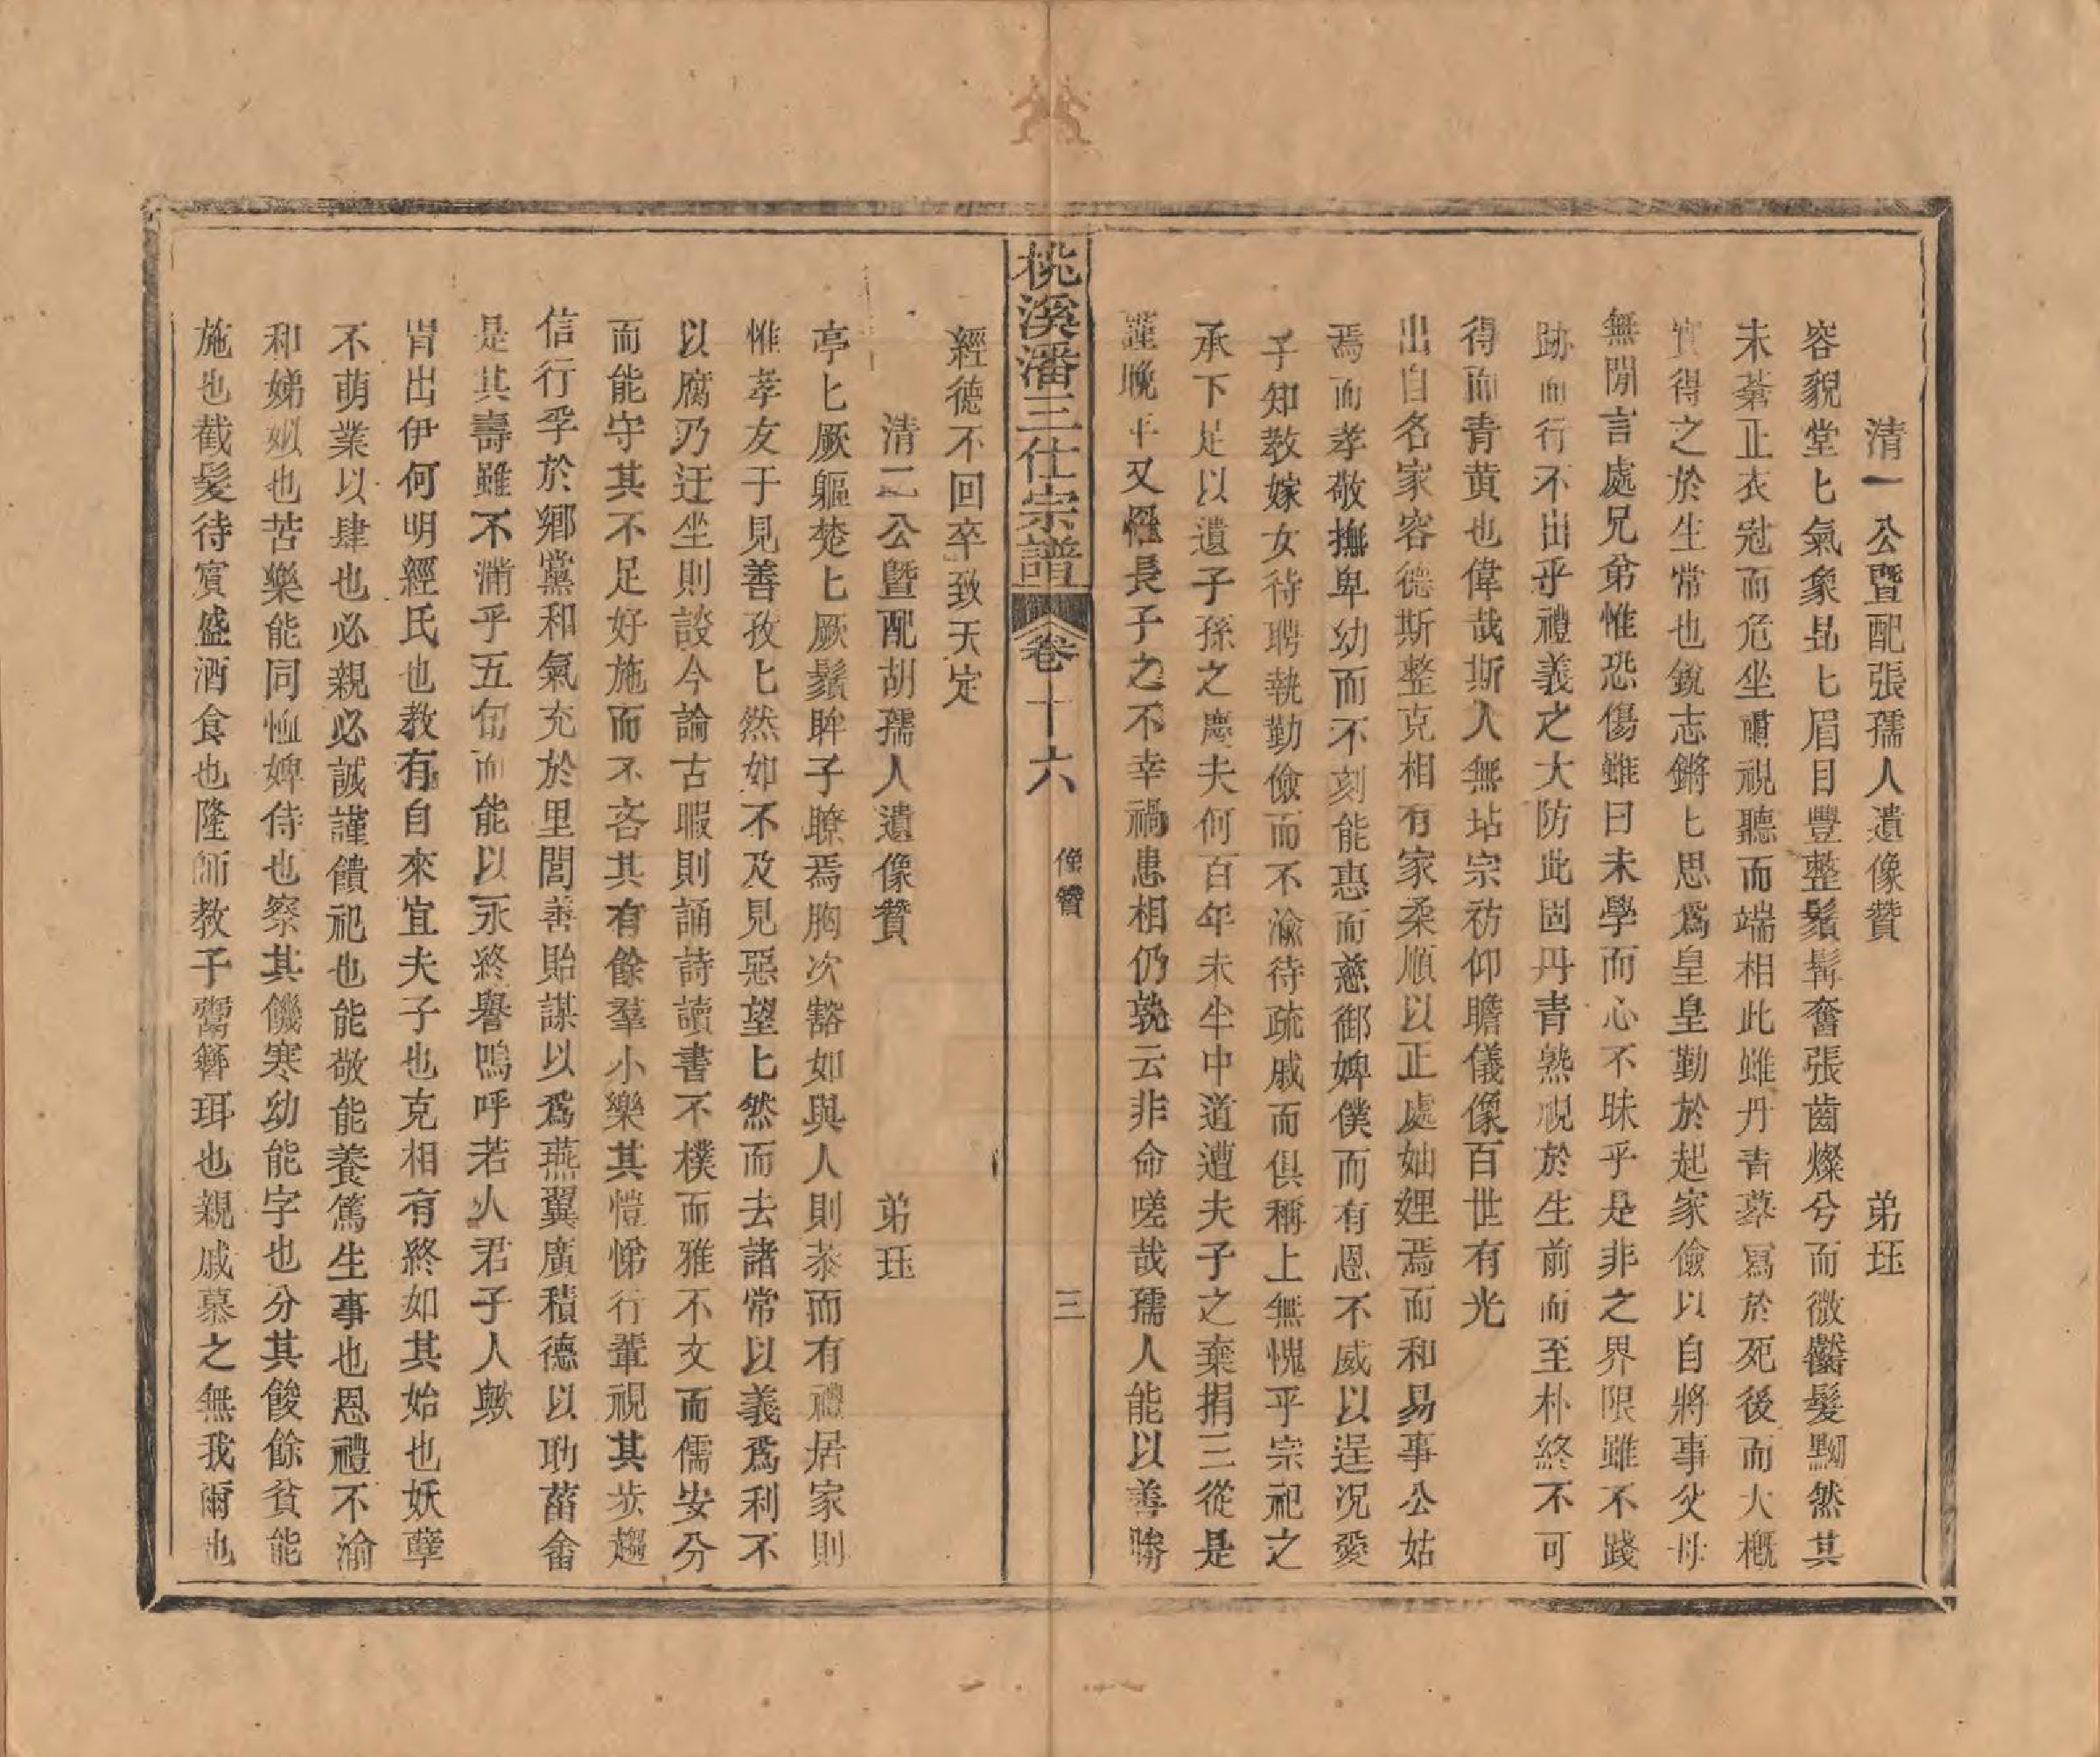 清一公暨配張孺人遺像贊　弟珏
容貌堂匕氣象昻匕眉目豐整鬚髯奮張齒燦兮而微齾髮黝然其
未蒼正衣冠而危坐肅視聽而端相此雖丹青摹寫於死後而大槪
實得之於生常也銳志鏘匕思爲皇皇勤於起家儉以自將事父母
無閒言處兄弟惟恐傷雖曰未學而心不昧乎是非之界限雖不踐
跡而行不出乎禮義之大防此固丹青熟視於生前而至朴終不可
得而青黃也偉哉斯人無玷宗祊仰瞻儀像百世有光
出自名家容德斯整克相有家柔順以正處妯娌焉而和易事公姑
焉而孝敬撫卑幼而不刻能惠而慈御婢僕而有恩不威以逞况愛
子知教嫁女待聘執勤儉而不渝待疏戚而俱稱上無愧乎宗祀之
承下足以遺子孫之慶夫何百年未半中道遭夫子之棄捐三從是
謹晩年又罹長子之不幸禍患相仍孰云非命嗟哉孺人能以善勝
桃溪潘三仕宗譜　卷十六　像贊　三
經德不回卒致天定
清二公暨配胡孺人遺像贊　弟珏
亭匕厥軀楚匕厥鬚眸子瞭焉胸次豁如與人則恭而有禮居家則
惟孝友于見善孜匕然如不及見惡望匕然而去諸常以義爲利不
以腐乃迂坐則談今論古暇則誦詩讀書不樸而雅不文而儒安分
而能守其不足好施而不吝其有餘羣小樂其愷悌行輩視其步趨
信行孚於鄉黨和氣充於里閭善貽謀以爲燕翼廣積德以助菑畬
是其壽雖不滿乎五旬而能以永終譽嗚呼若人君子人歟
胄出伊何明經氏也教有自來宜夫子也克相有終如其始也妖孽
不萌業以肆也必親必誠謹饋祀也能敬能養篤生事也恩禮不渝
和娣姒也苦樂能同恤婢侍也察其饑寒幼能字也分其餕餘貧能
施也截髮待賓盛酒食也隆師教子鬻簪珥也親戚慕之無我爾也